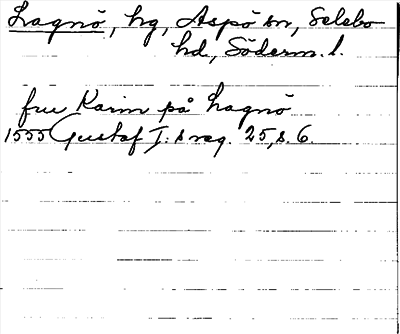 Lagnö, hg, Aspö sn, Selebo
hd, Söderm. l.
fru Karin på Lagnö
1555 Gustaf I:s reg. 25, s. 6.